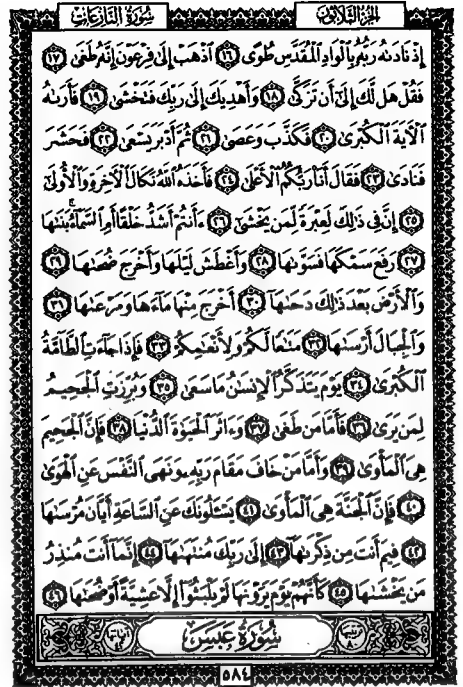 سُورَةُ النَّازِعَاتِ الجُزْءُ الثَّلَاثُونَ
إِذْ نَادَىٰهُ رَبُّهُۥ بِٱلْوَادِ ٱلْمُقَدَّسِ طُوًى ١٦ ٱذْهَبْ إِلَىٰ فِرْعَوْنَ إِنَّهُۥ طَغَىٰ ١٧
فَقُلْ هَل لَّكَ إِلَىٰٓ أَن تَزَكَّىٰ ١٨ وَأَهْدِيَكَ إِلَىٰ رَبِّكَ فَتَخْشَىٰ ١٩ فَأَرَىٰهُ
ٱلْـَٔايَةَ ٱلْكُبْرَىٰ ٢٠ فَكَذَّبَ وَعَصَىٰ ٢١ ثُمَّ أَدْبَرَ يَسْعَىٰ ٢٢ فَحَشَرَ
فَنَادَىٰ ٢٣ فَقَالَ أَنَا۠ رَبُّكُمُ ٱلْأَعْلَىٰ ٢٤ فَأَخَذَهُ ٱللَّهُ نَكَالَ ٱلْـَٔاخِرَةِ وَٱلْأُولَىٰٓ
٢٥ إِنَّ فِى ذَٰلِكَ لَعِبْرَةً لِّمَن يَخْشَىٰٓ ٢٦ ءَأَنتُمْ أَشَدُّ خَلْقًا أَمِ ٱلسَّمَآءُ ۚ بَنَىٰهَا
٢٧ رَفَعَ سَمْكَهَا فَسَوَّىٰهَا ٢٨ وَأَغْطَشَ لَيْلَهَا وَأَخْرَجَ ضُحَىٰهَا ٢٩
وَٱلْأَرْضَ بَعْدَ ذَٰلِكَ دَحَىٰهَآ ٣٠ أَخْرَجَ مِنْهَا مَآءَهَا وَمَرْعَىٰهَا ٣١
وَٱلْجِبَالَ أَرْسَىٰهَا ٣٢ مَتَـٰعًا لَّكُمْ وَلِأَنْعَـٰمِكُمْ ٣٣ فَإِذَا جَآءَتِ ٱلطَّآمَّةُ
ٱلْكُبْرَىٰ ٣٤ يَوْمَ يَتَذَكَّرُ ٱلْإِنسَـٰنُ مَا سَعَىٰ ٣٥ وَبُرِّزَتِ ٱلْجَحِيمُ
لِمَن يَرَىٰ ٣٦ فَأَمَّا مَن طَغَىٰ ٣٧ وَءَاثَرَ ٱلْحَيَوٰةَ ٱلدُّنْيَا ٣٨ فَإِنَّ ٱلْجَحِيمَ
هِىَ ٱلْمَأْوَىٰ ٣٩ وَأَمَّا مَنْ خَافَ مَقَامَ رَبِّهِۦ وَنَهَى ٱلنَّفْسَ عَنِ ٱلْهَوَىٰ
٤٠ فَإِنَّ ٱلْجَنَّةَ هِىَ ٱلْمَأْوَىٰ ٤١ يَسْـَٔلُونَكَ عَنِ ٱلسَّاعَةِ أَيَّانَ مُرْسَىٰهَا
٤٢ فِيمَ أَنتَ مِن ذِكْرَىٰهَآ ٤٣ إِلَىٰ رَبِّكَ مُنتَهَىٰهَآ ٤٤ إِنَّمَآ أَنتَ مُنذِرُ
مَن يَخْشَىٰهَا ٤٥ كَأَنَّهُمْ يَوْمَ يَرَوْنَهَا لَمْ يَلْبَثُوٓا۟ إِلَّا عَشِيَّةً أَوْ ضُحَىٰهَا ٤٦
ترتيبها ٨٠ سُورَةُ عَبَسَ آياتها ٤٢
٥٨٤